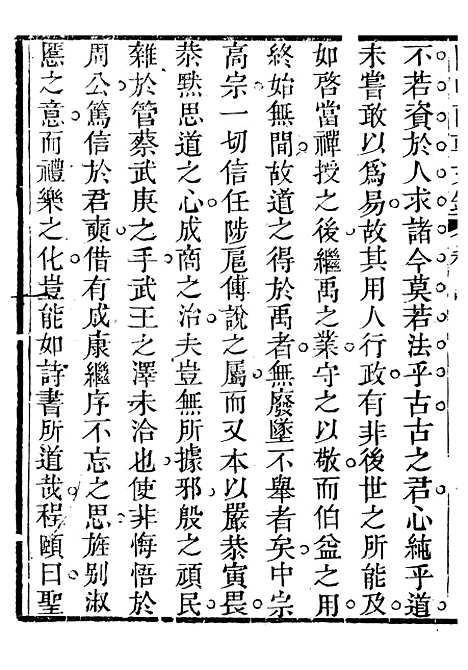 不若資於人求諸今莫若法乎古古之君心純乎道
未嘗敢以爲易故其用人行政有非後世之所能及
如啓當禪授之後繼禹之業守之以敬而伯益之用
終始無間故道之得於禹者無廢墜不舉者矣中宗
高宗一切信任陟扈傅說之屬而又本以嚴恭寅畏
恭默思道之心成商之治夫豈無所據邪殷之頑民
雜於管蔡武庚之手武王之澤未洽也使非悔悟於
周公篤信於君奭借有成康繼序不忘之思旌别淑
慝之意而禮樂之化豈能如詩書所道哉程頤曰聖